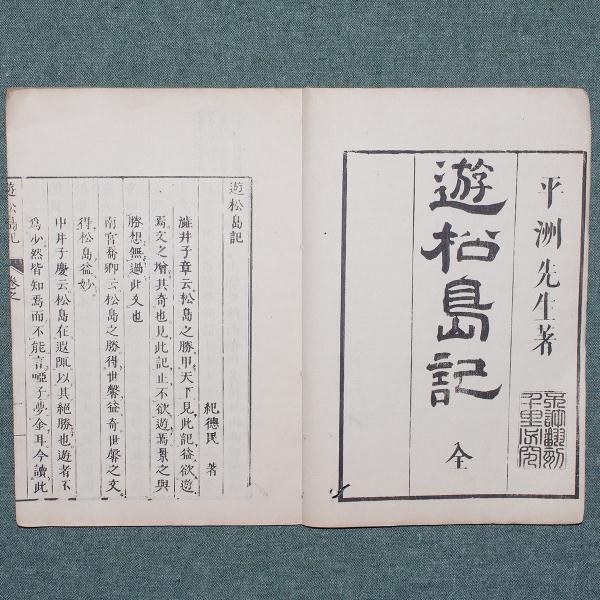 平洲先生著
遊松島記
全
遊松島記
紀德民 著
瀧井子章云松島之勝甲天下見此記益欲遊
焉文之增其奇也見此記止不欲遊焉景之與
勝想無過此文也
南宮喬卿云松島之勝得世馨益奇世馨之文
得松島益妙
中井子慶云松島在遐陬以其絕勝也遊者不
爲少然皆知焉而不能言啞子夢金耳今讀此
遊松島記
卷之